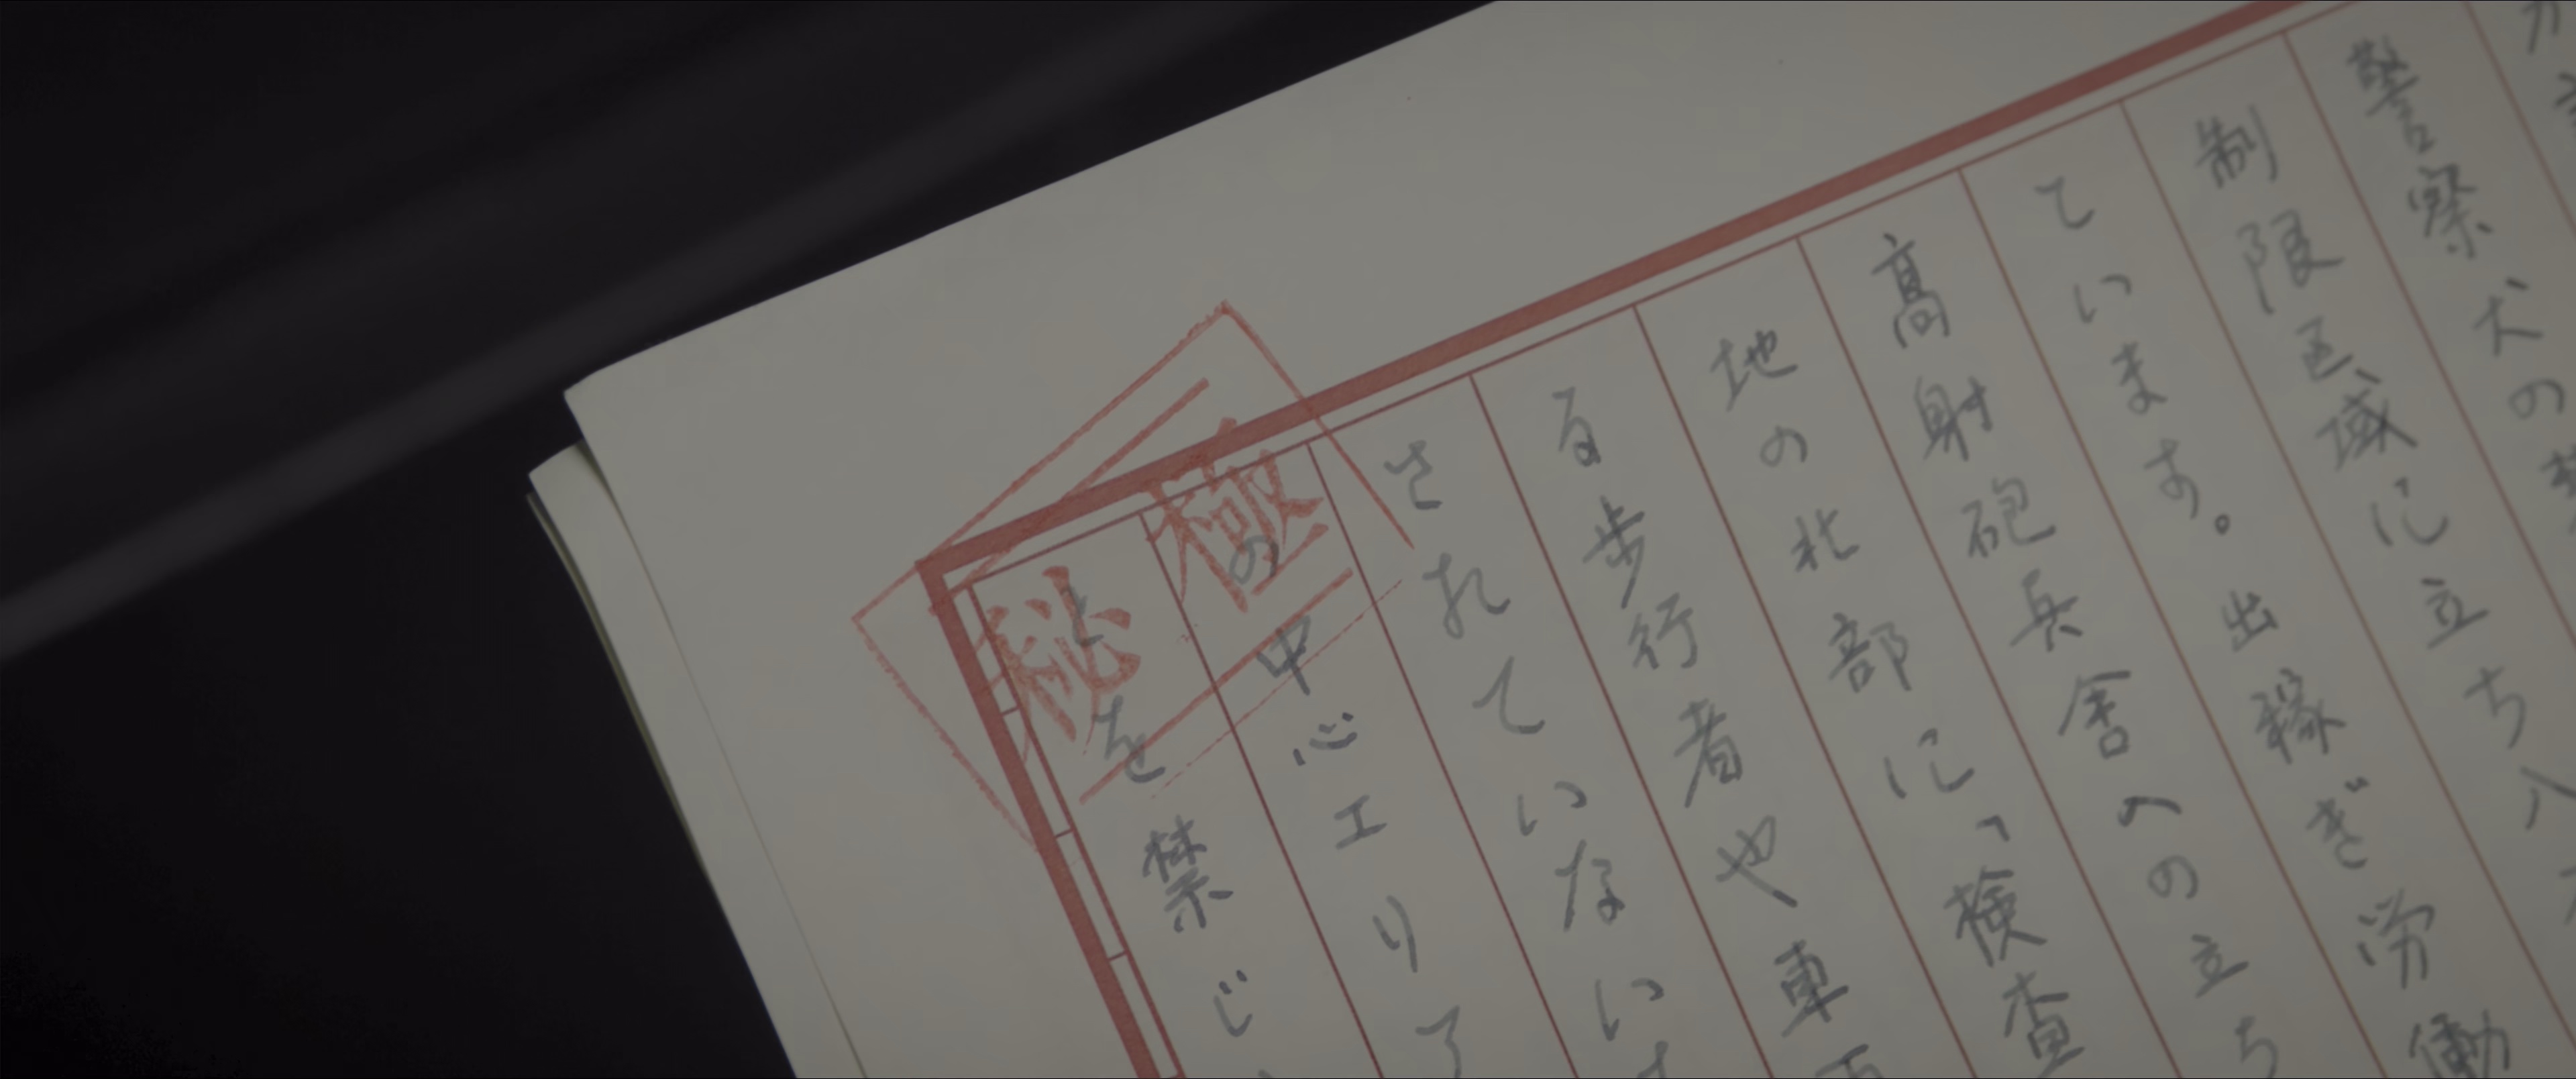 警察犬の
制限区域に立ち入
ています。出稼ぎ労働
高射砲兵舎への立ち
地の北部に「検査
る歩行者や車両
されていない
の中心エリア
とを禁じ
極秘